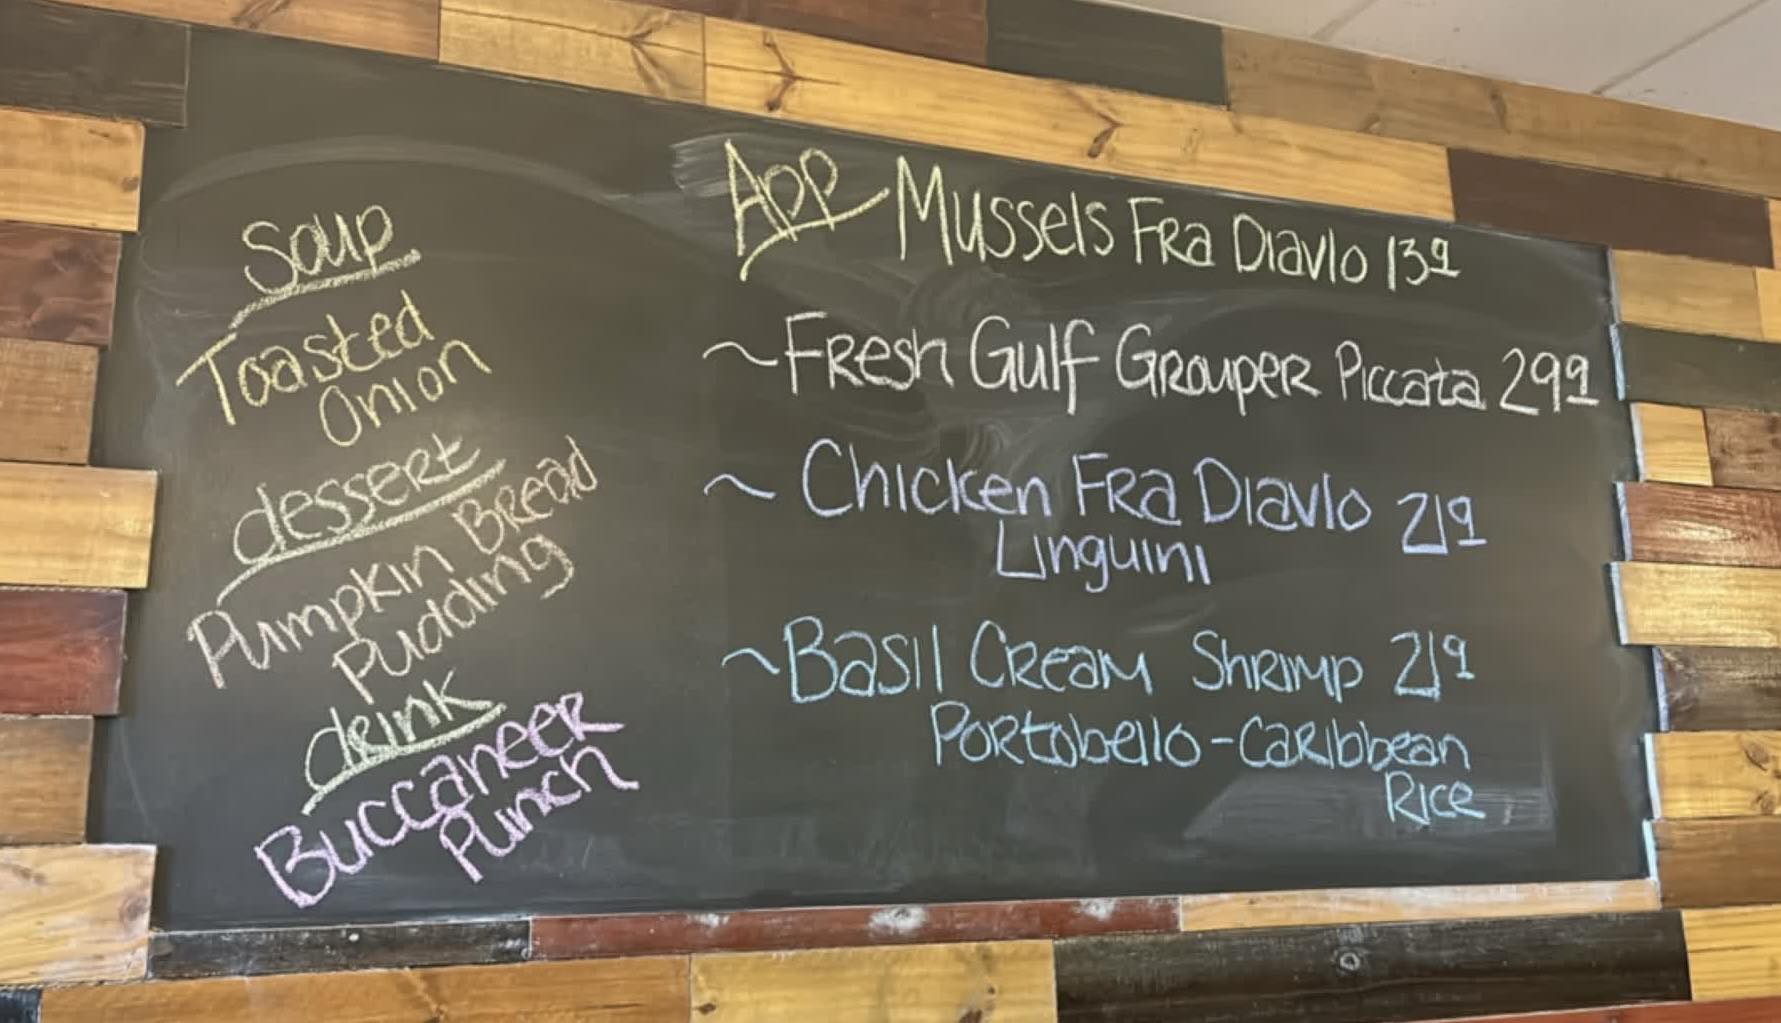 Soup
Toasted
Onion
dessert
Pumpkin Bread
Pudding
drink
Buccaneer
Punch
App Mussels Fra Diavlo 13 9
~Fresh Gulf Grouper Piccata 29 9
~ Chicken Fra Diavlo 21 9
Linguini
~Basil Cream Shrimp 21 9
Portobello - Caribbean
Rice